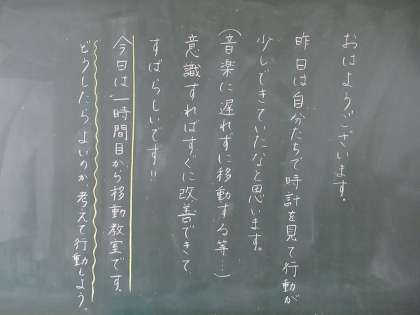 おはようございます。
昨日は自分たちで時計を見て行動が
少しできていたなと思います。
(音楽に遅れずに移動する等…)
意識すればすぐに改善できて
すばらしいです!!
今日は一時間目から移動教室です。
どうしたらよいのか考えて行動しよう。